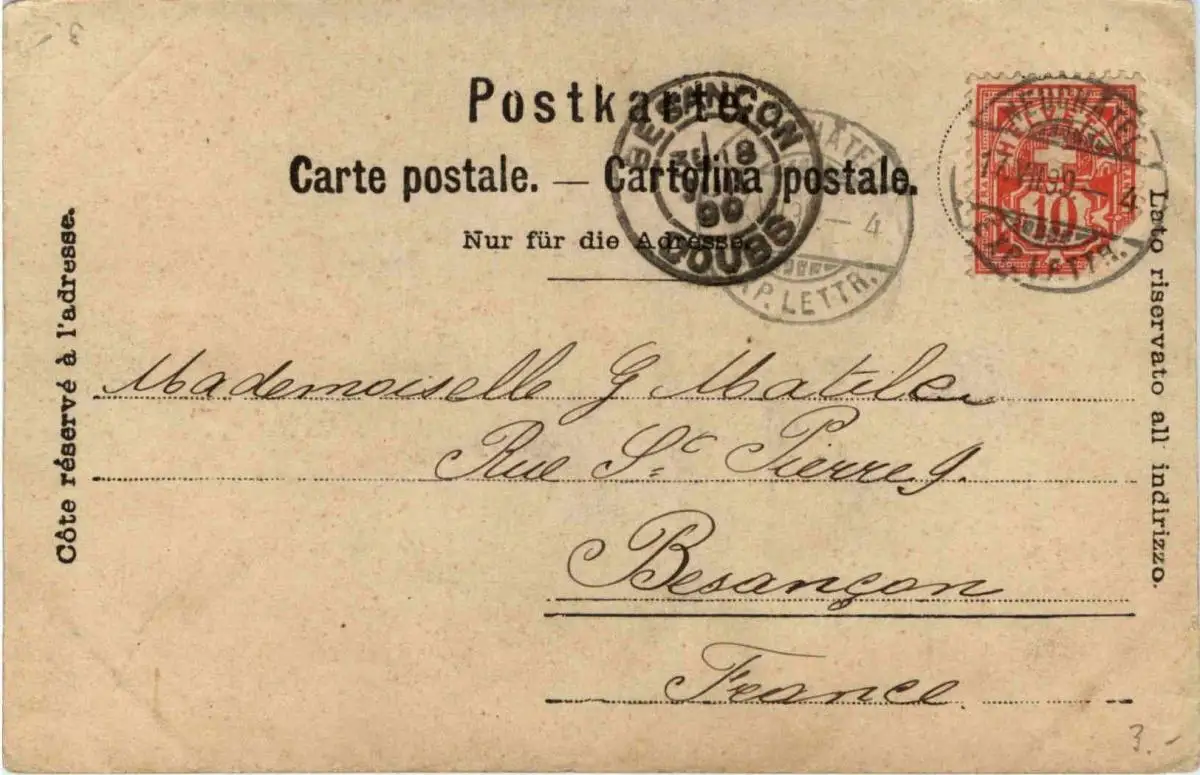 Postkarte.
Carte postale. — Cartolina postale.
Nur für die Adresse.
Côte réservé à l'adresse.
Lato riservato all indirizzo.
BESANÇON
18
99
DOUBS
— 4
EXP. LETTR.
NEUCHATEL
HELVETIA
10
VII.99 — 4
EXP. LETTR.
Mademoiselle G
Rue St Pierre 9.
Besançon
France
3.-